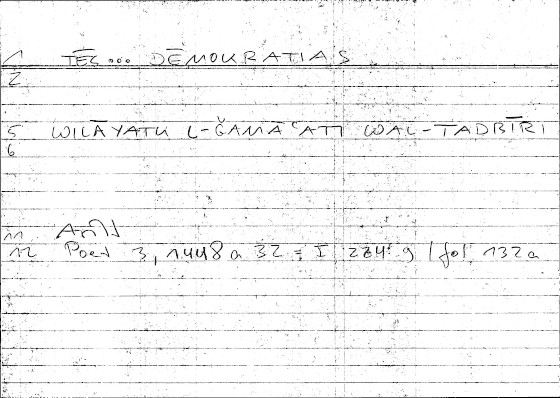 1 TĒS... DĒMOKRATIAS
2
5 WILĀYATU L-ǦAMĀʿATI WAL-TADBĪRI
6
11
12 Poet 3, 1448 a 32 = I 224: 9 / fol. 132a